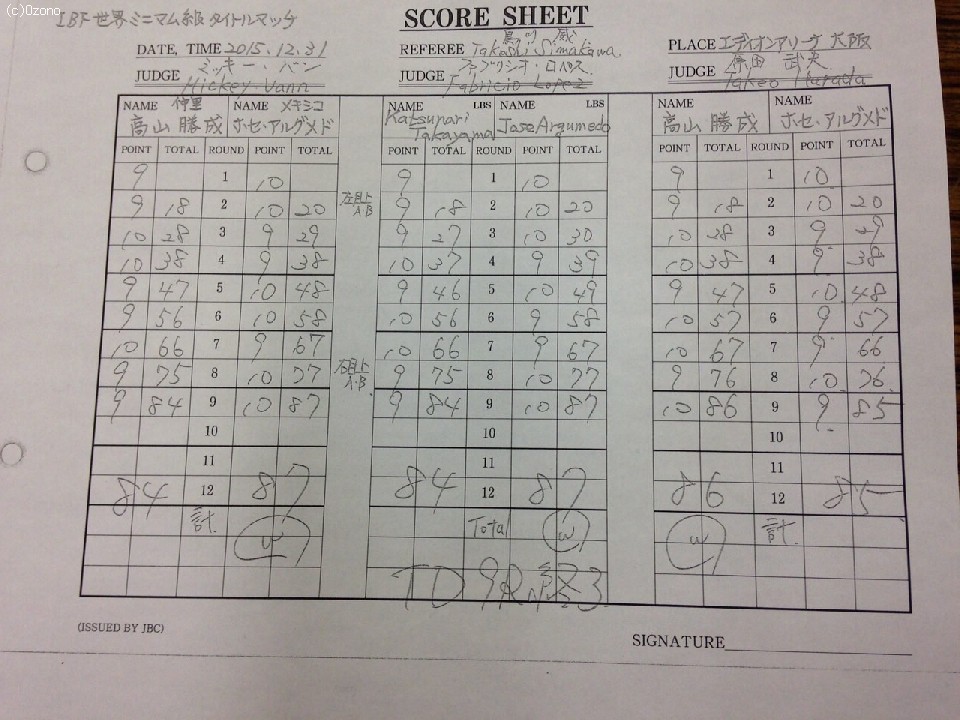 (c)Ozono
IBF世界ミニマム級タイトルマッチ
SCORE SHEET
DATE, TIME 2015.12.31
REFEREE Takashi Simakawa
PLACE エディオンアリーナ 大阪
JUDGE ミッキー・バン
Mickey Vann
JUDGE ファブリシオ・ロペス
Fabricio Lopez
JUDGE 原田 武夫
Takeo Harada
NAME 仲里 NAME メキシコ NAME LBS NAME LBS NAME NAME
高山 勝成 ホセ・アルグメド Katsunari Takayama Jose Argumedo 高山 勝成 ホセ・アルグメド
POINT TOTAL ROUND POINT TOTAL POINT TOTAL ROUND POINT TOTAL POINT TOTAL ROUND POINT TOTAL
9 1 10 9 1 10 9 1 10
9 18 2 10 20 右目上 A・B 9 18 2 10 20 9 18 2 10 20
10 28 3 9 29 9 27 3 10 30 10 28 3 9 29
10 38 4 9 38 10 37 4 9 39 10 38 4 9 38
9 47 5 10 48 9 46 5 10 49 9 47 5 10 48
9 56 6 10 58 10 56 6 9 58 10 57 6 9 57
10 66 7 9 67 10 66 7 9 67 10 67 7 9 66
9 75 8 10 77 右目上 A・B 9 75 8 10 77 9 76 8 10 76
9 84 9 10 87 9 84 9 10 87 10 86 9 9 85
10 10 10
11 11 11
84 12 87 84 12 87 86 12 85
計 W Total W W 計
TD 9R
(ISSUED BY JBC)
SIGNATURE